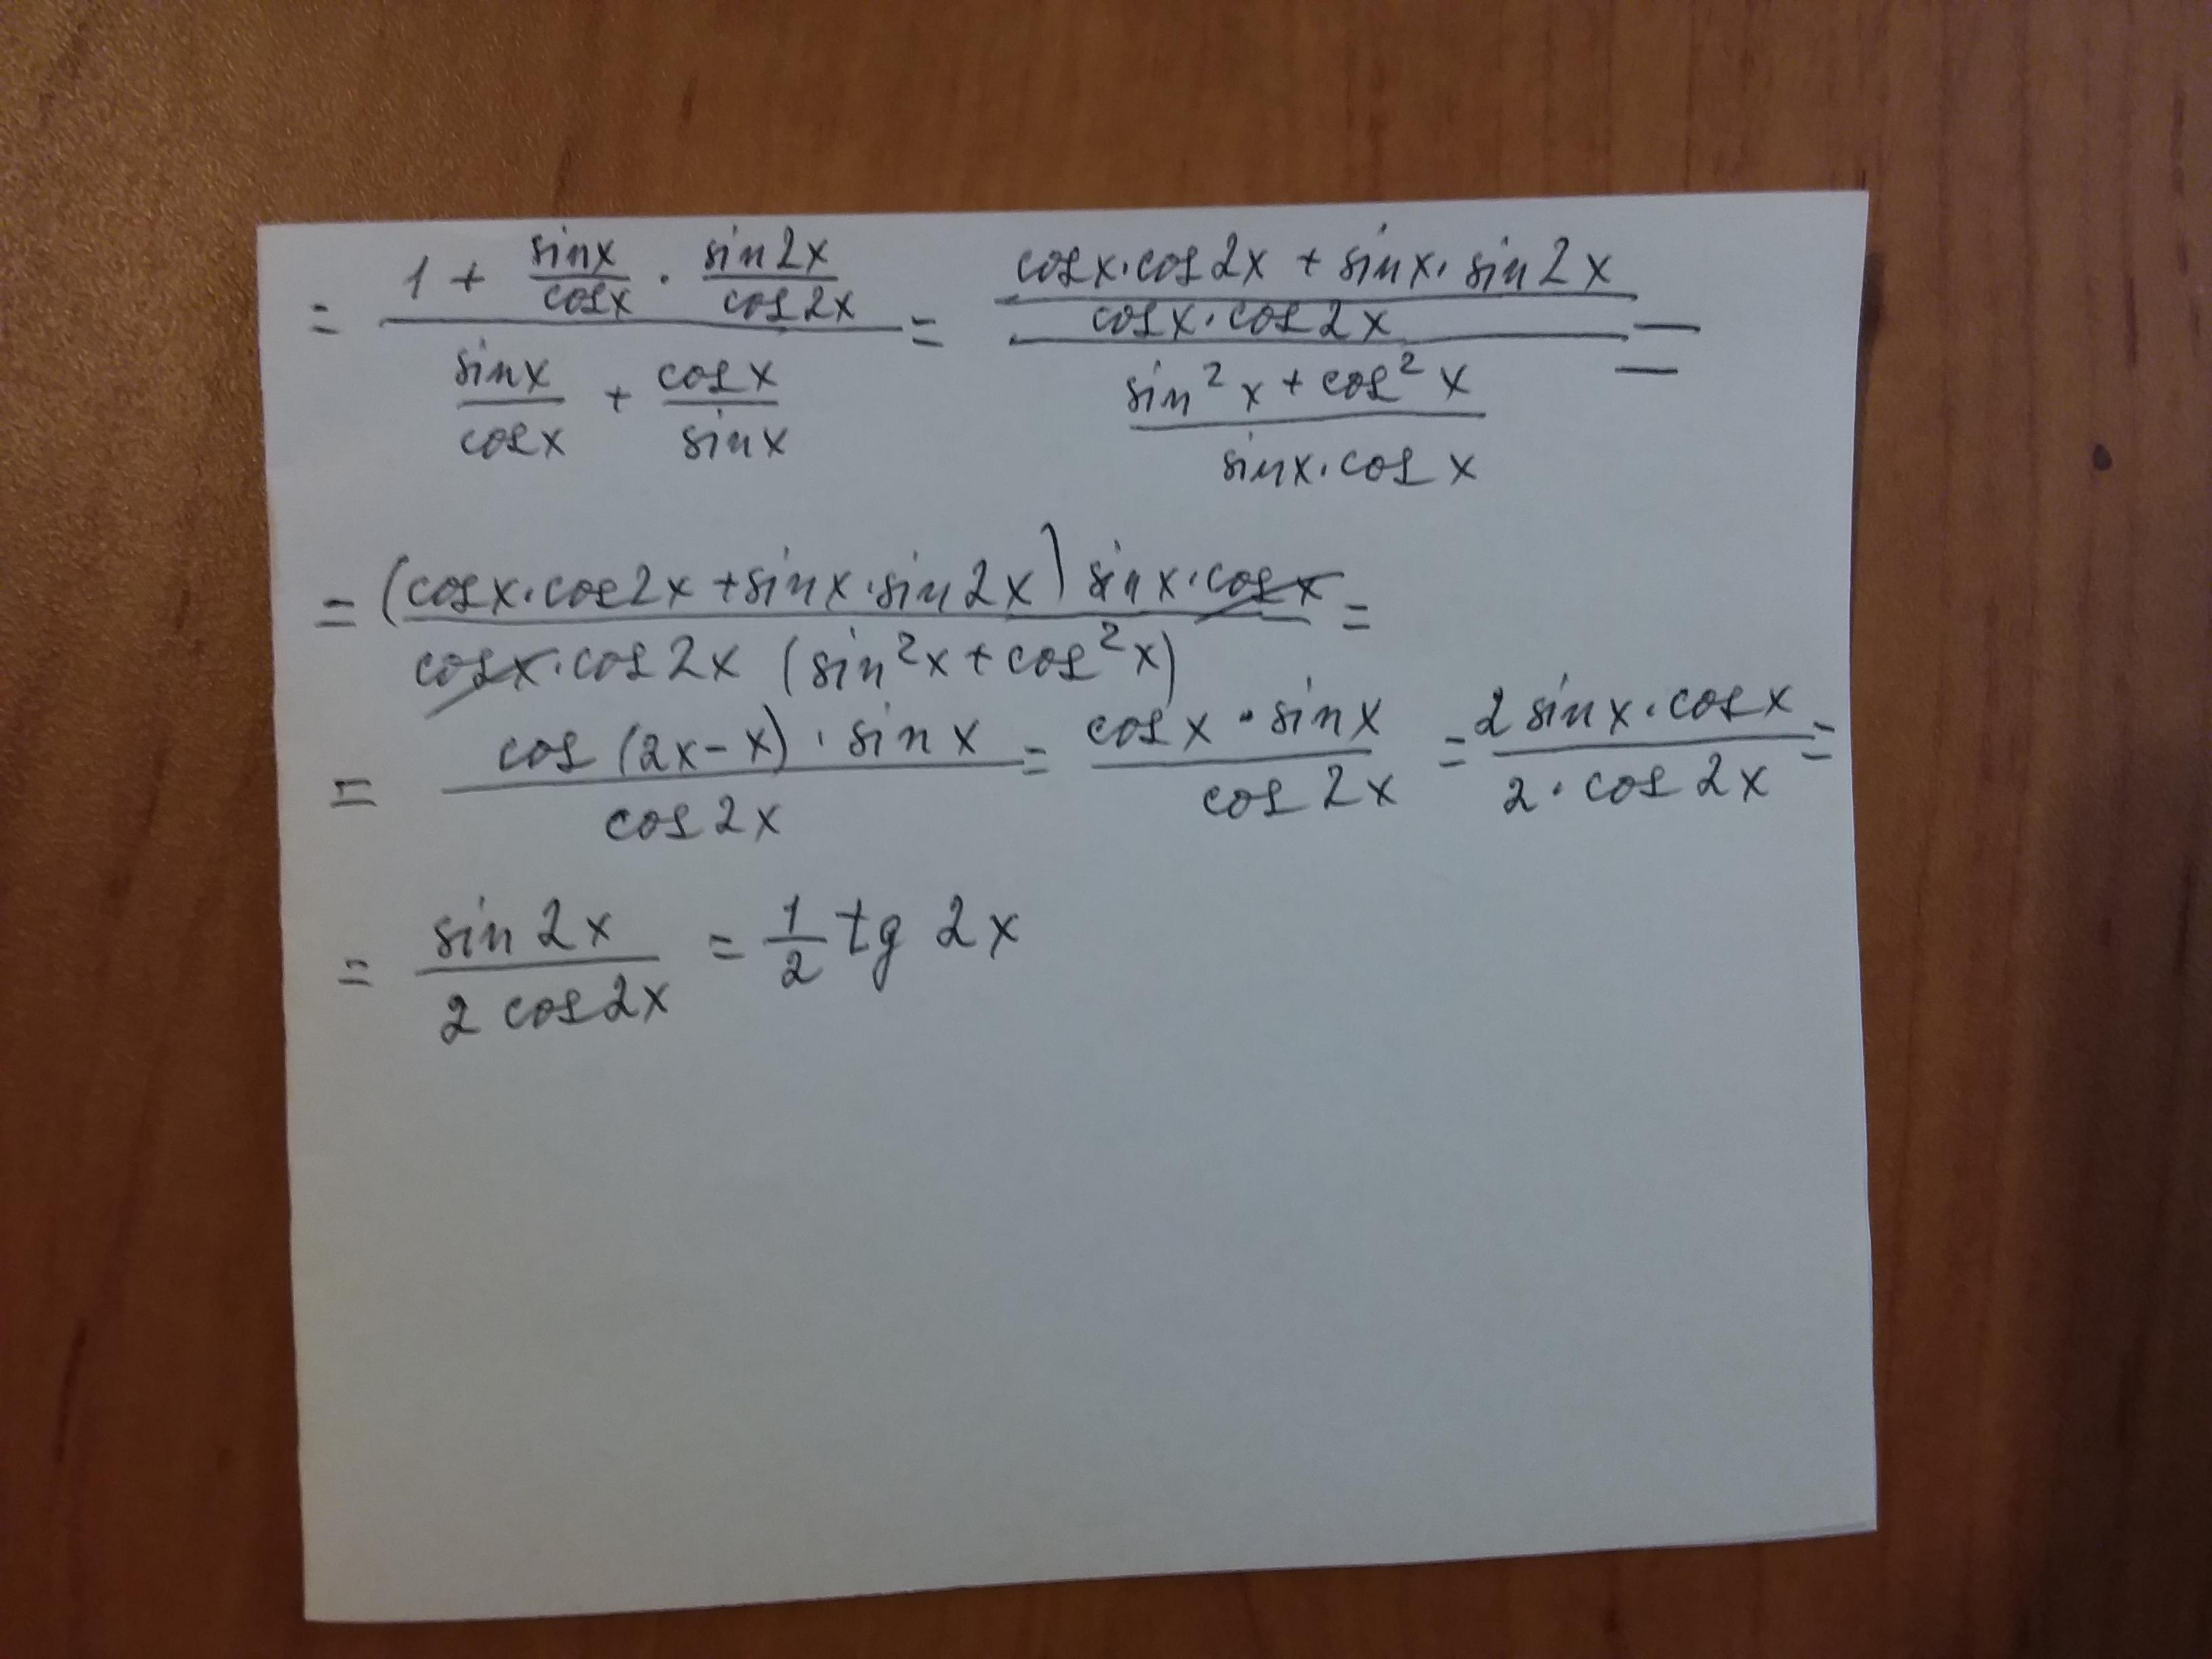 = (1 + sinx/cosx · sin2x/cos2x) / (sinx/cosx + cosx/sinx) = ((cosx·cos2x + sinx·sin2x)/(cosx·cos2x)) / ((sin²x + cos²x)/(sinx·cosx)) =
= ((cosx·cos2x + sinx·sin2x) sinx·cosx) / (cosx·cos2x (sin²x + cos²x)) =
= (cos(2x-x)·sinx) / cos2x = (cosx·sinx) / cos2x = (2sinx·cosx) / (2·cos2x) =
= sin2x / (2cos2x) = 1/2 tg 2x